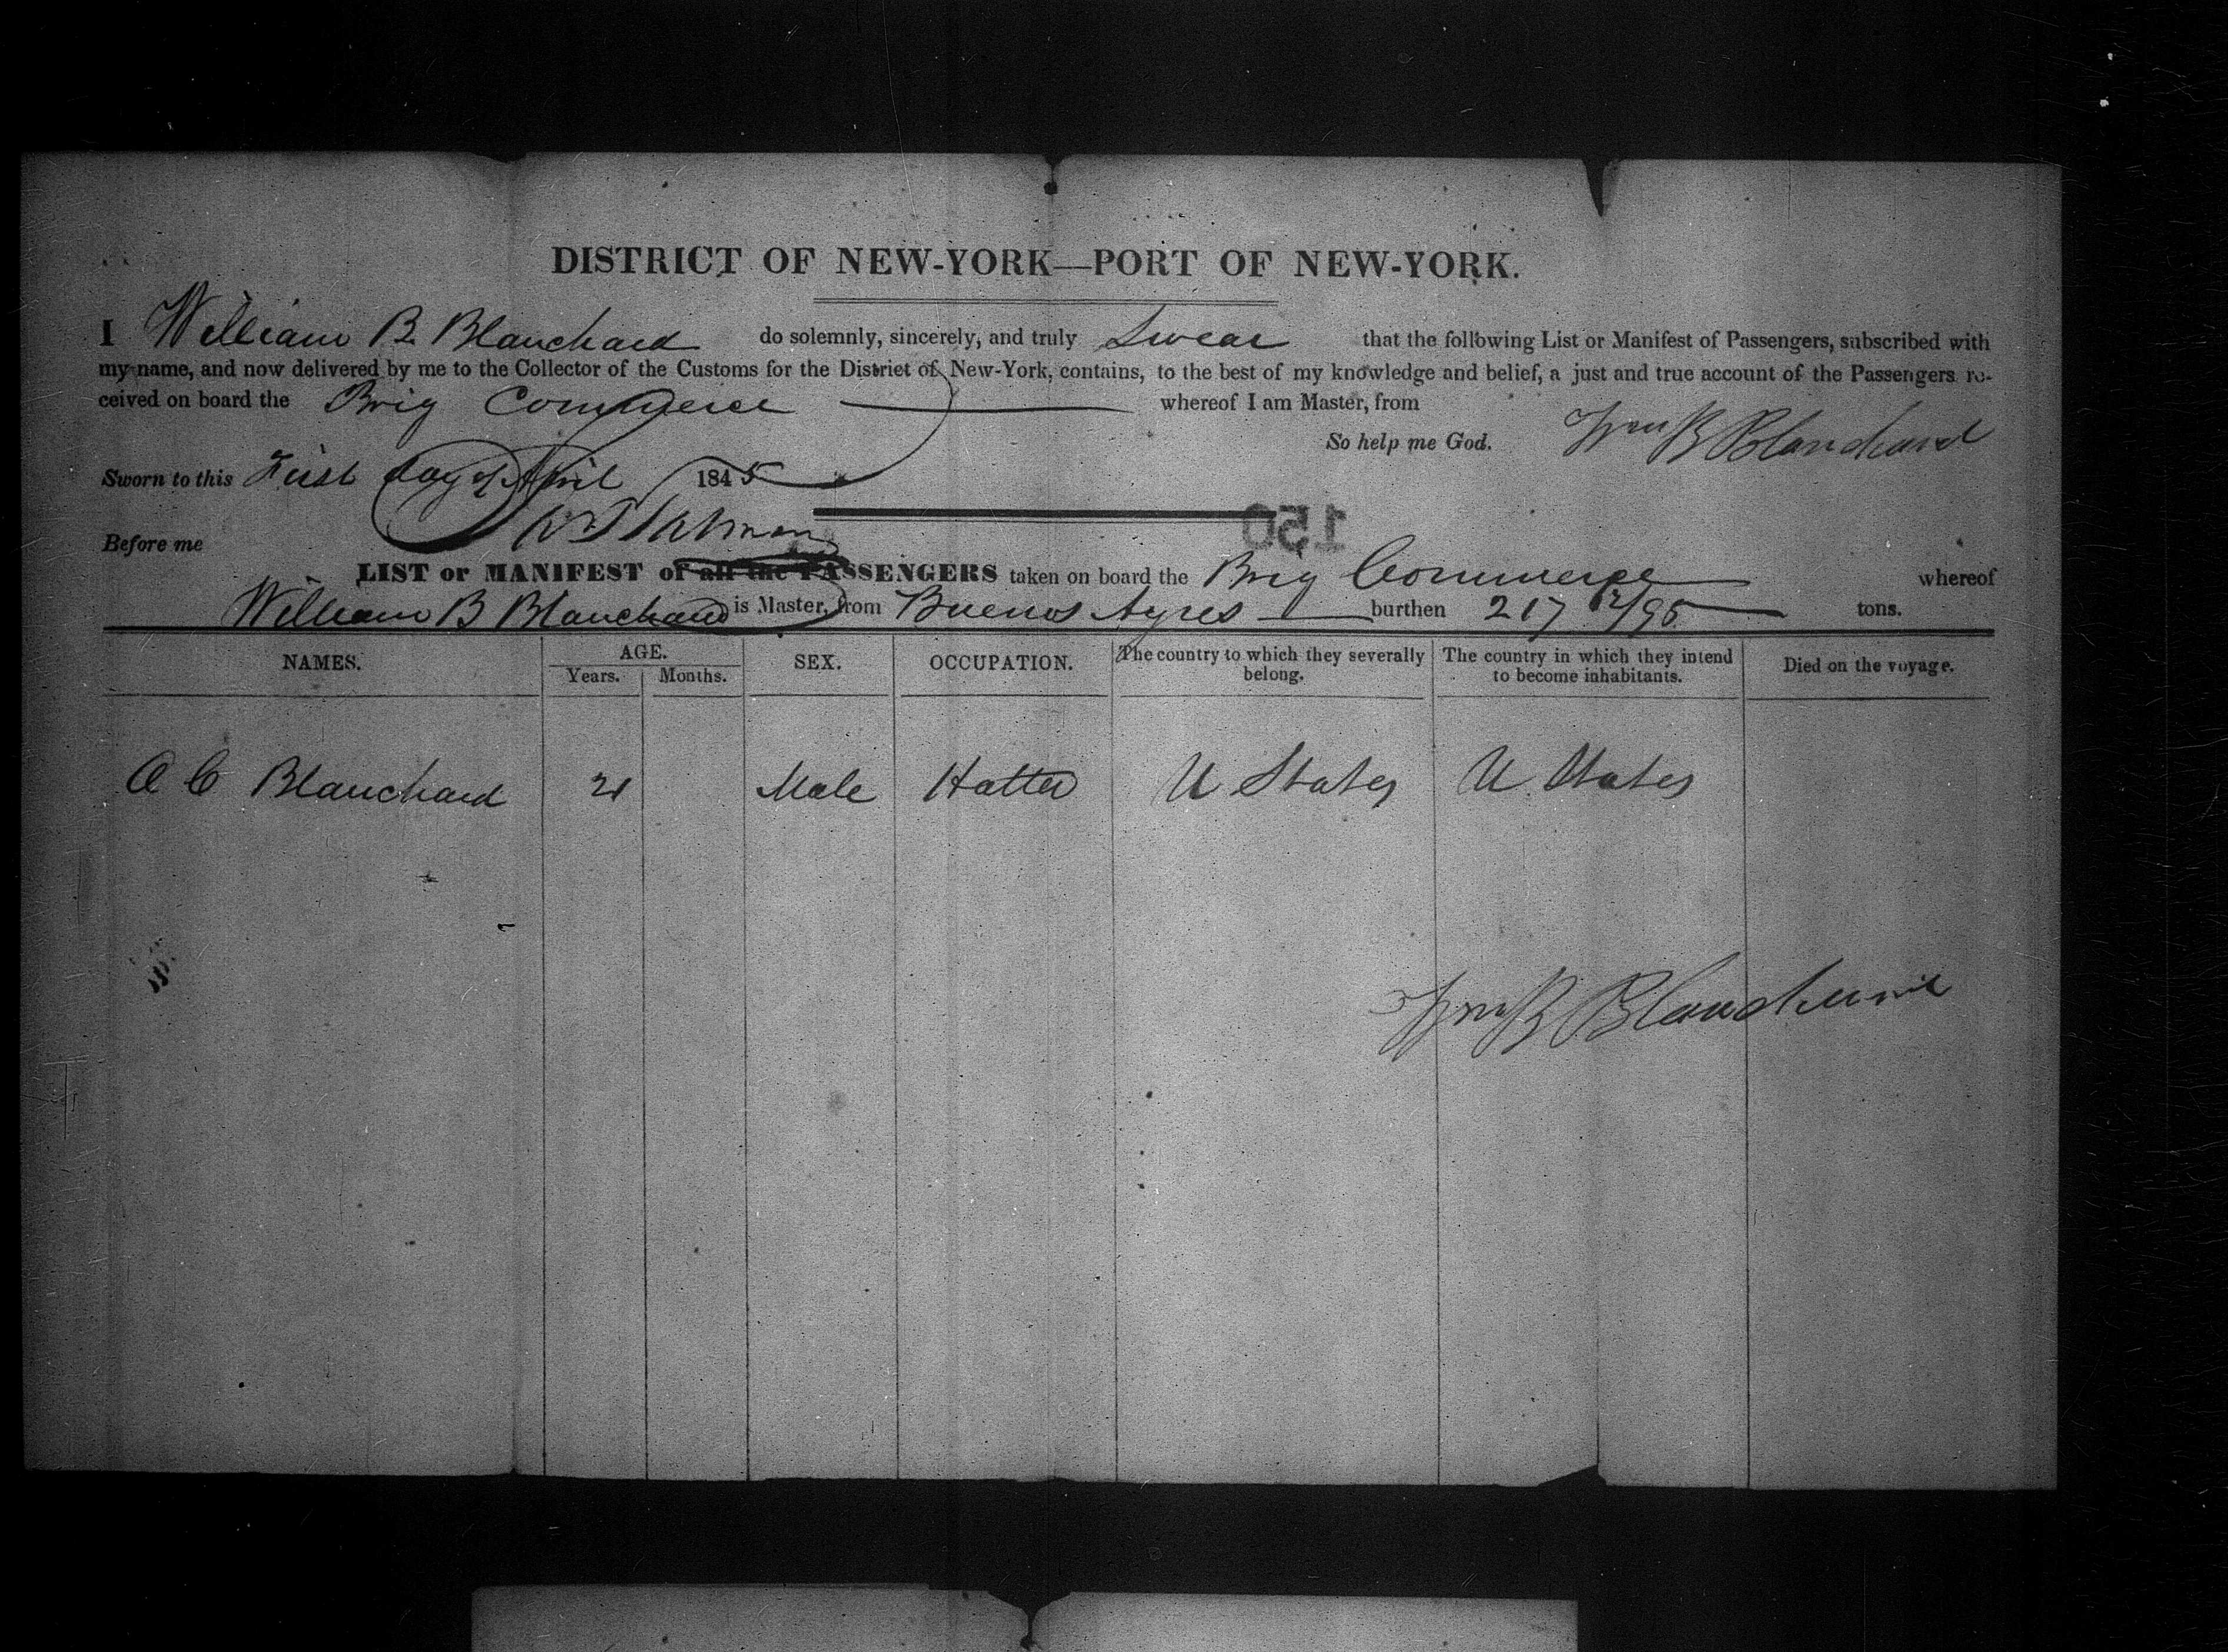 DISTRICT OF NEW-YORK—PORT OF NEW-YORK.
I William B. Blanchard do solemnly, sincerely, and truly Swear that the following List or Manifest of Passengers, subscribed with
my name, and now delivered by me to the Collector of the Customs for the District of New-York, contains, to the best of my knowledge and belief, a just and true account of the Passengers re-
ceived on board the Brig Commerce whereof I am Master, from
So help me God. Wm B Blanchard
Sworn to this First day of April 1845
150
Before me
LIST or MANIFEST of all the PASSENGERS taken on board the Brig Commerce whereof
William B Blanchard is Master, from Buenos Ayres burthen 217 12/95 tons.
NAMES. AGE. Years. Months. SEX. OCCUPATION. The country to which they severally belong. The country in which they intend to become inhabitants. Died on the voyage.
A C Blanchard 21 Male Hatter U States U. States
Wm B Blanchard